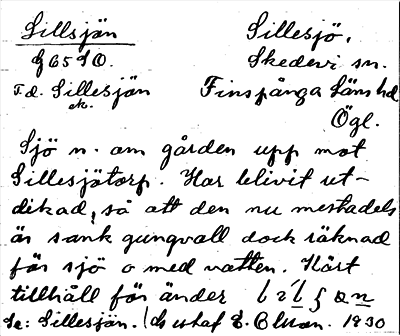 Sillsjön Sillesjö,
G 65 SO. Skedevi sn.
T.d. Sillesjön Finspånga läns hd
ek. Ögl.
Sjö n. om gården upp mot
Sillesjötorp. Har blivit ut-
dikad, så att den nu mestadels
är sank gungvall dock räknad
för sjö o med vatten. Kärt
tillhåll för änder
Se: Sillesjön. E. Olsson. 1930